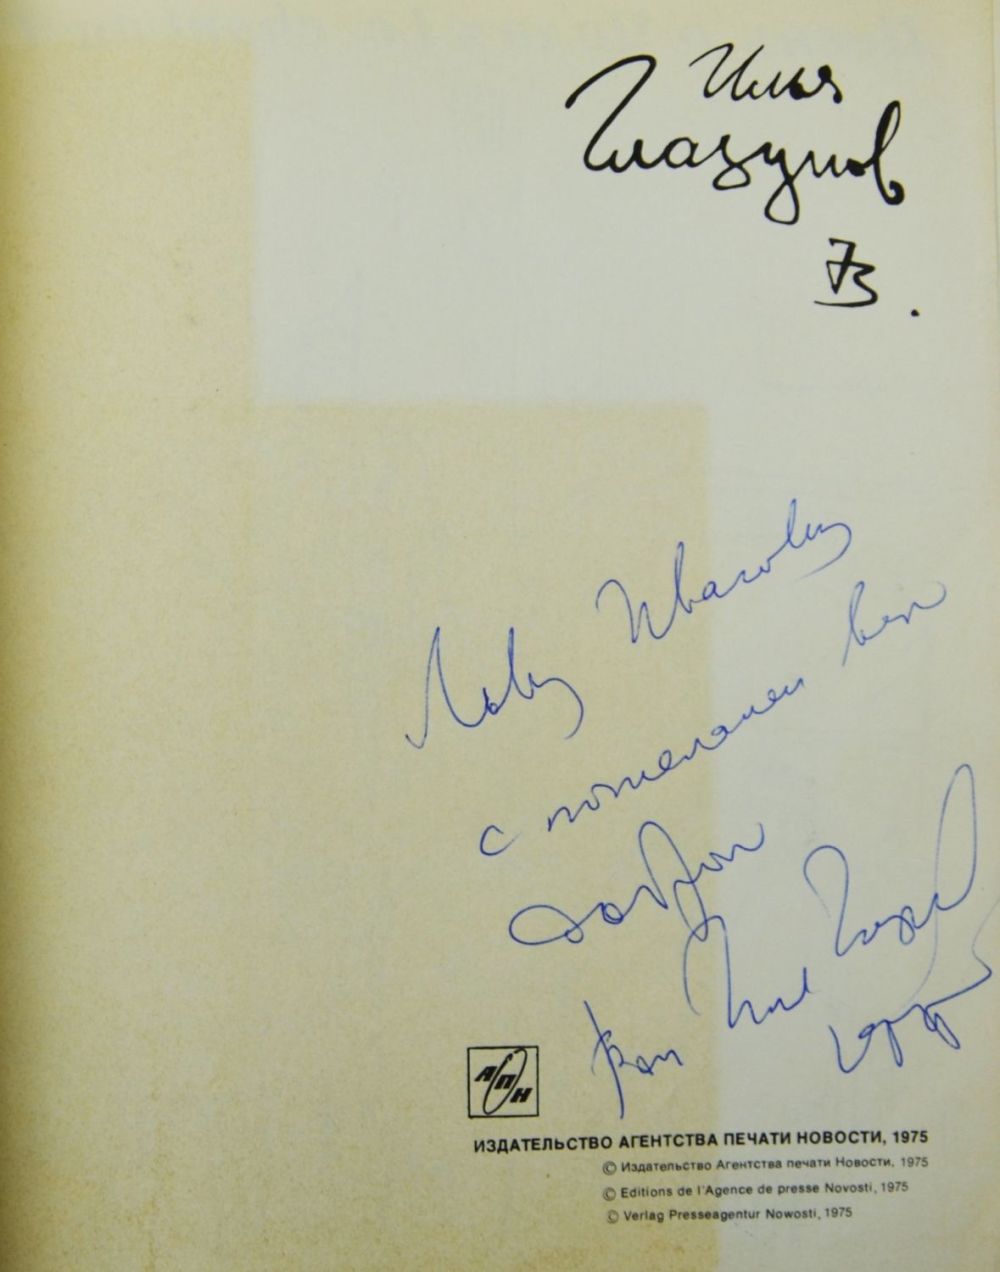 Илья
Глазунов
73.
Льву Ивановичу
с пожеланием всего
доброго
Илья Глазунов
АПН
ИЗДАТЕЛЬСТВО АГЕНТСТВА ПЕЧАТИ НОВОСТИ, 1975
© Издательство Агентства печати Новости, 1975
© Editions de l'Agence de presse Novosti, 1975
© Verlag Presseagentur Nowosti, 1975